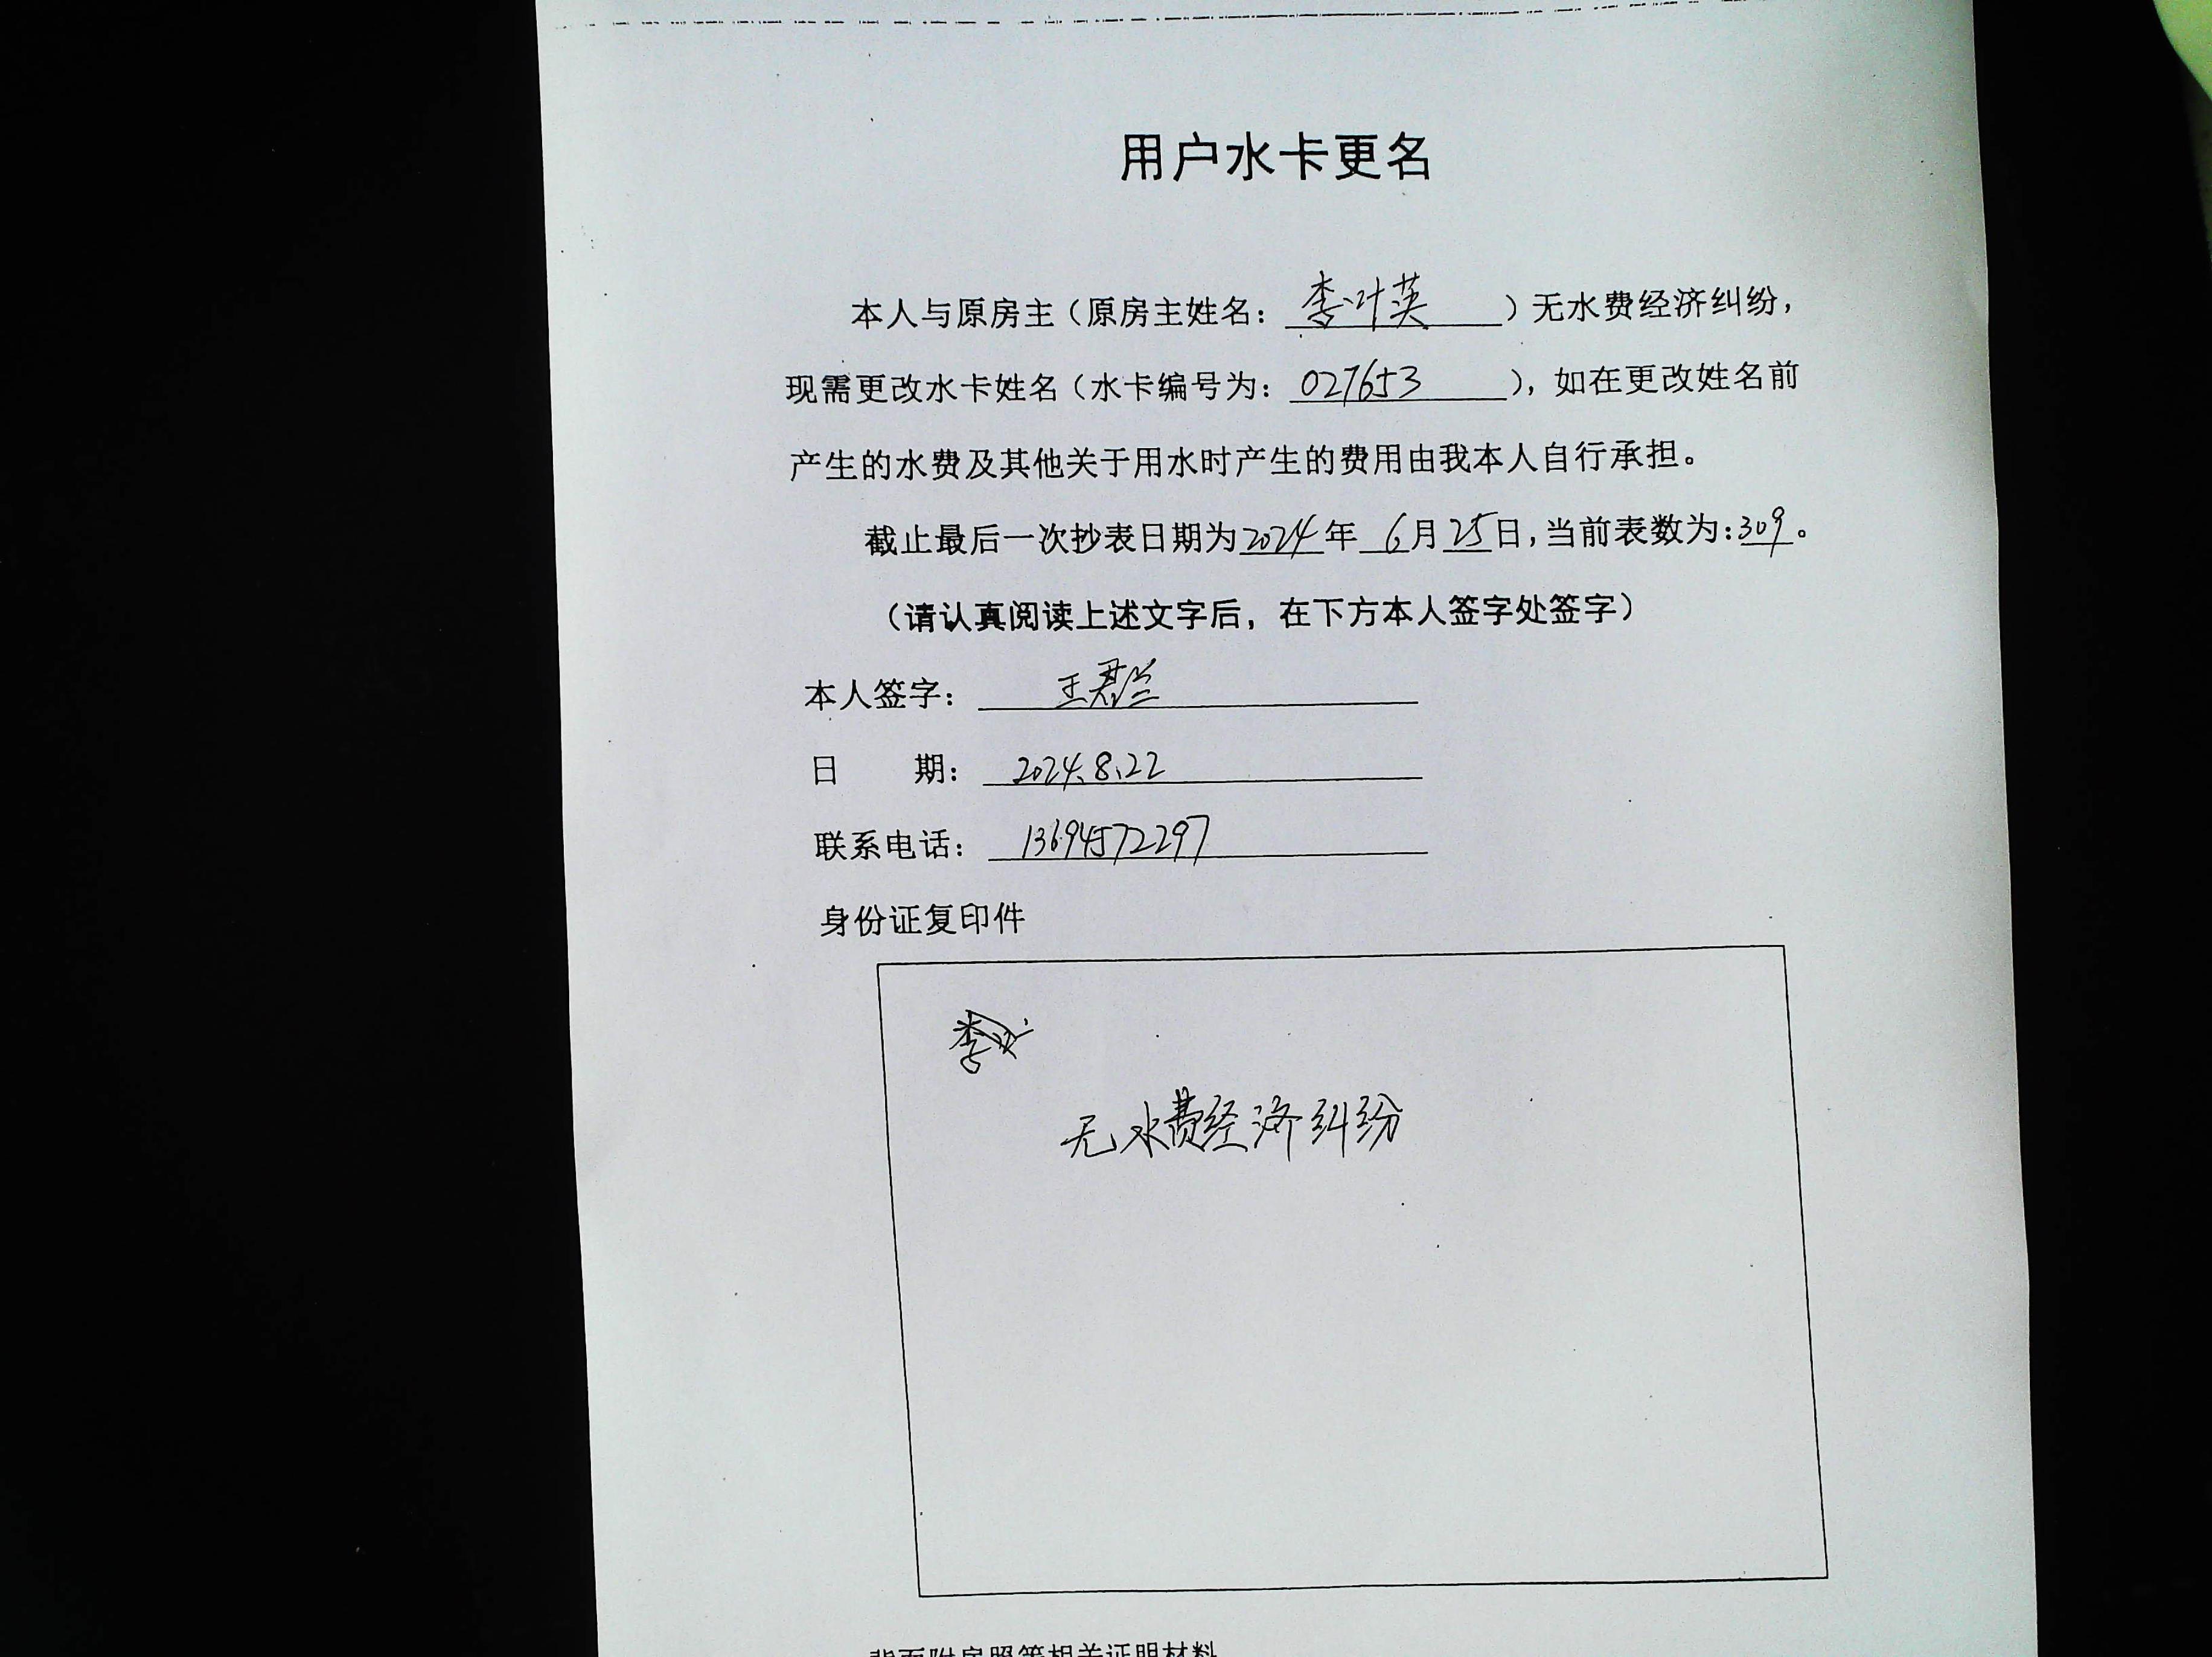 用户水卡更名
本人与原房主（原房主姓名：李叶英）无水费经济纠纷，
现需更改水卡姓名（水卡编号为：027653），如在更改姓名前
产生的水费及其他关于用水时产生的费用由我本人自行承担。
截止最后一次抄表日期为2024年 6月25日，当前表数为：309。
（请认真阅读上述文字后，在下方本人签字处签字）
本人签字：王君兰
日 期：2024.8.22
联系电话：13694572297
身份证复印件
李
无水费经济纠纷
背面附房照等相关证明材料